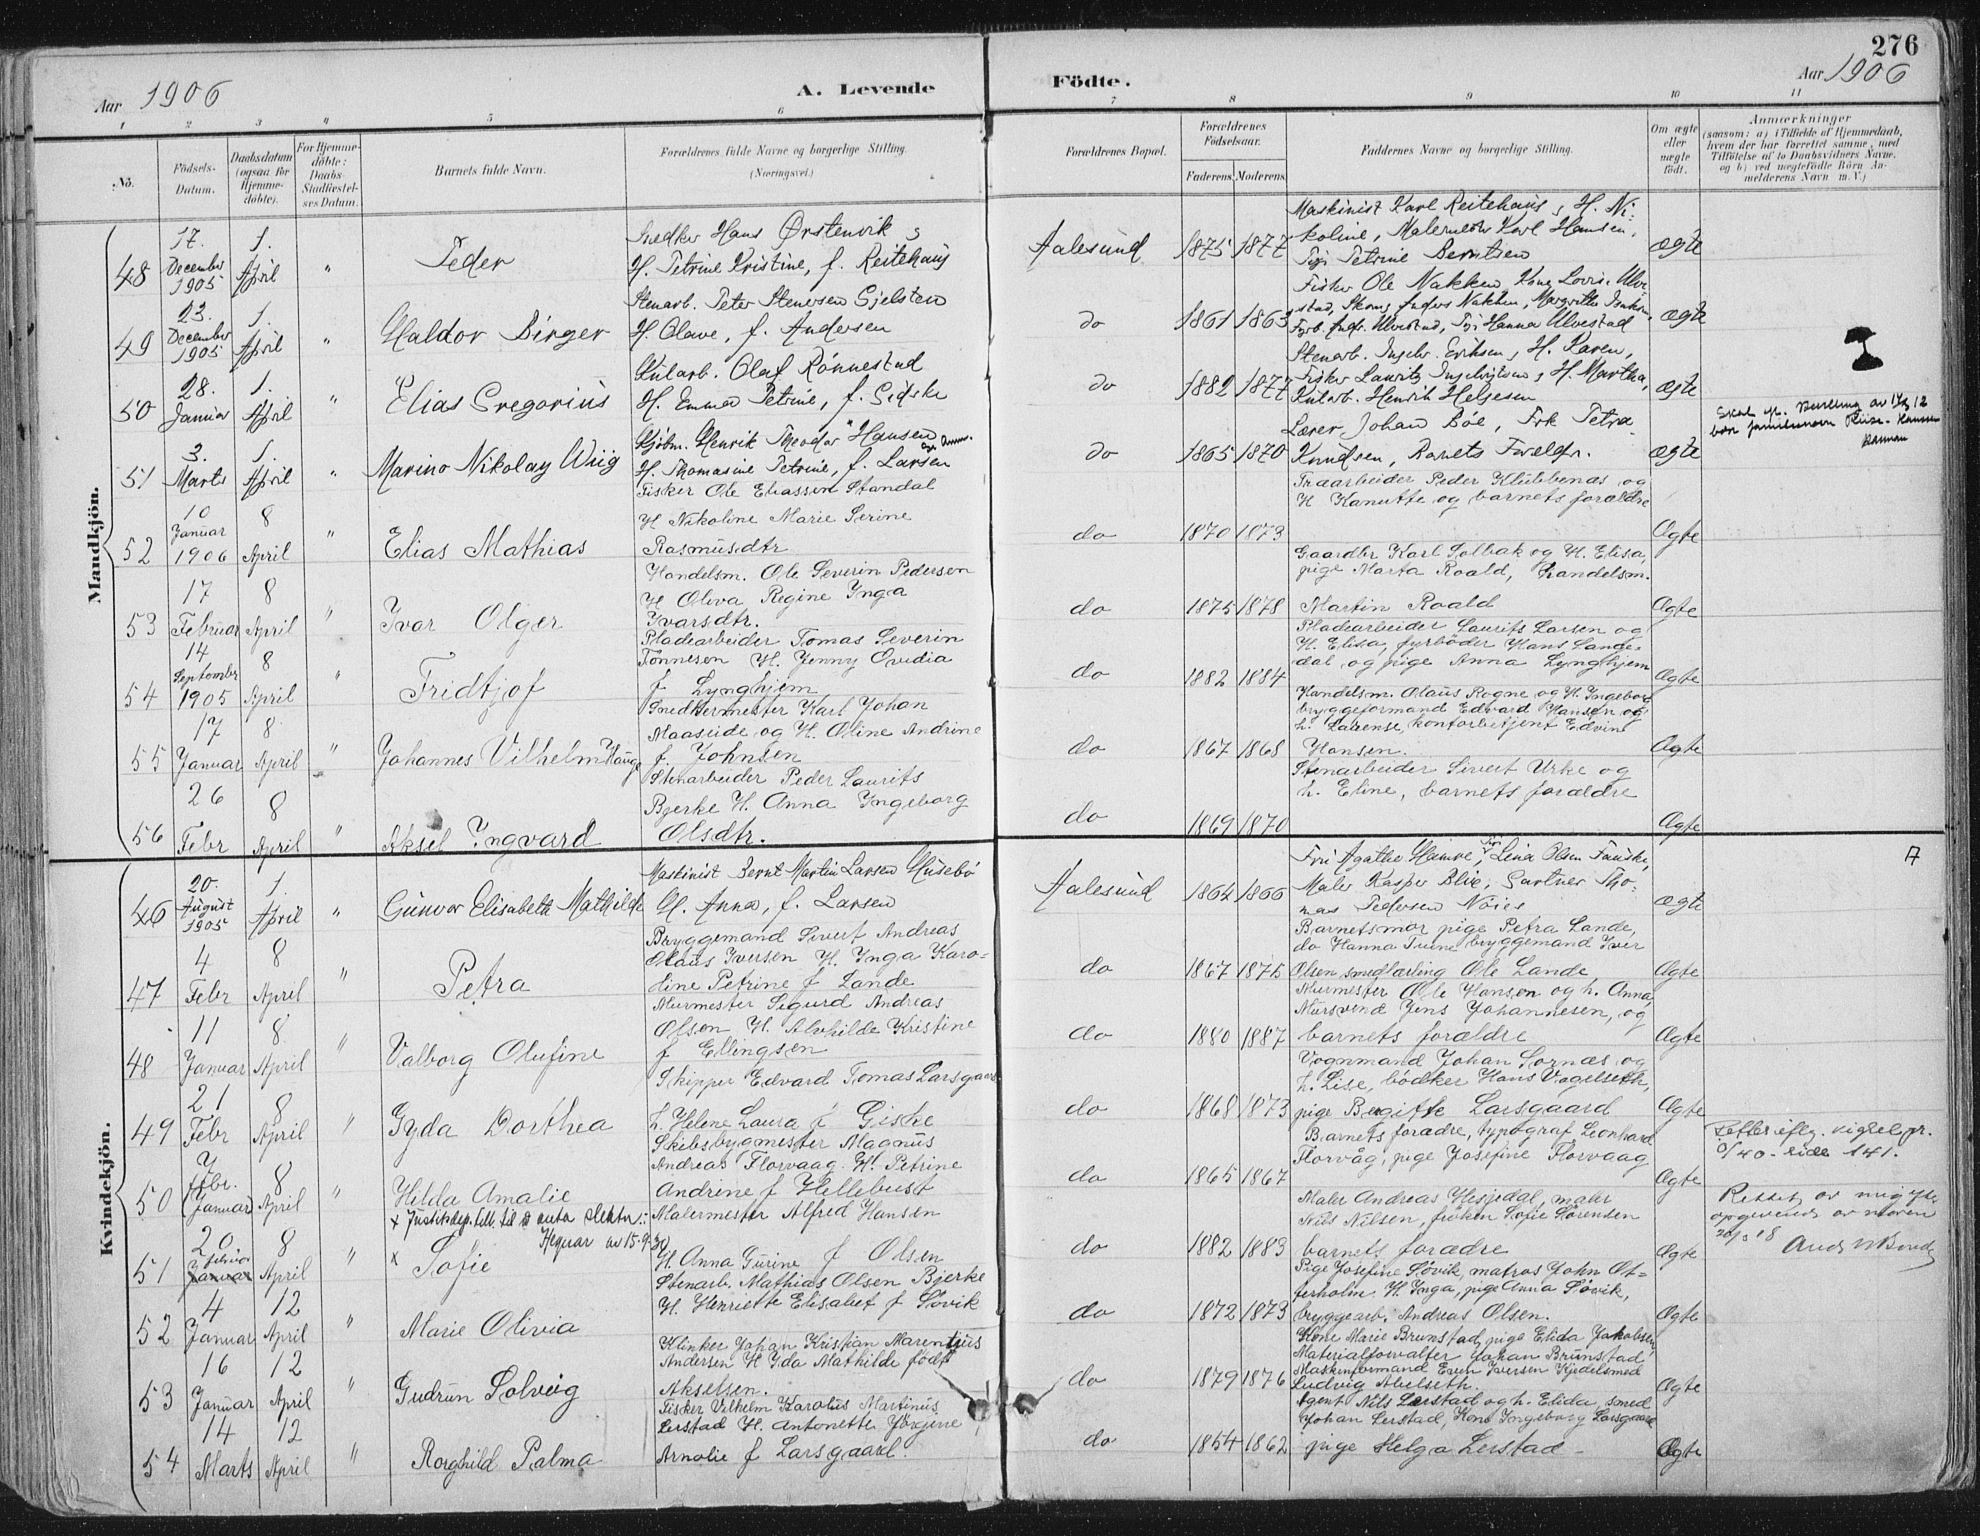 276
Aar 1906
A. Levende
Födte.
Aar 1906
1 2 3 4 5 6 7 8 9 10 11
No.
Födsels-Datum.
Daabsdatum (ogsaa for Hjemme-döbte).
For Hjemme-döbte: Daabs-Stadfæstel-ses Datum.
Barnets fulde Navn.
Forældrenes fulde Navne og borgerlige Stilling. (Næringsvei.)
Forældrenes Bopæl.
Forældrenes Födselsaar.
Faderens. Moderens.
Faddernes Navne og borgerlige Stilling.
Om ægte eller uægte födt.
Anmærkninger
(saasom: a) i Tilfælde af Hjemmedaab, hvem der har forrettet samme, med Tilföielse af to Daabsvidners Navne, og b) ved uægtefödte Börn Anmelderens Navn m. V.)
Mandkjön.
48 17. December 1905 1. April " Peder
Snedker Hans Ørstenvik,
H. Petrine Kristine, f. Reitehaug
Aalesund 1875 1877
Maskinist Karl Reitehaug, H. Ni-
koline, Malermester Karl Hansen,
Pige Petrine Berntsen
ægte
49 23. December 1905 1. April " Haldor Birger
Stenarb. Peter Stenersen Gjelsten
H. Olave, f. Andersen
do 1861 1863
Fisker Ole Nakken, Kone Lovise Ulve-
stad, Anders Nakken,
Fyrb. Andr. Ulvestad, Pige Hanna Ulvestad
ægte
50 28. Januar 1. April " Elias Gregorius
Kularb. Olaf Rønnestad
H. Emma Petrine, f. Gidske
do 1882 1877
Stenarb. Ingebr. Eriksen, H. Karen,
Fisker Lauritz Ingebrigtsen, H. Martha,
Kularb. Henrik Helgesen
ægte
51 3. Marts 1. April " Marino Nikolay Wiig
Kjøbm. Henrik Theodor Hansen
H. Thomasine Petrine, f. Larsen
do 1865 1870
Lærer Johan Bøe, Frk Petra
Knudsen, Barnets Foreldr.
ægte
Skal
bære familienavn Riise-Hansen
52 10 Januar 1906 8 April " Elias Mathias
Fisker Ole Eliassen Standal
H Nikoline Marie Serine
Rasmusdtr
do 1870 1873
Træarbeider Peder Klubbenæs og
H Kanutte og barnets forældre
Ægte
53 17 Februar 8 April " Ivar Olger
Handelsm. Ole Severin Pedersen
H Oliva Regine Inga
Ivarsdtr.
do 1875 1878
Gaardbr Karl Solbak og H. Elisa,
pige Marta Roald, handelsm.
Martin Roald
Ægte
54 14 September 1905 8 April " Fridtjof
Pladearbeider Tomas Severin
Tønnesen H. Jenny Ovidia
f Lynghjem
do 1882 1884
Pladearbeider Laurits Larsen og
H. Elisa, fyrböder Hans Lande-
dal og pige Anna Lynghjem
Ægte
55 17 Januar 8 April " Johannes Vilhelm Hauge
Snedkermester Karl Johan
Maaseide og H. Oline Andrine
f. Johnsen
do 1867 1868
Handelsm. Olaus Rogne og H. Ingeborg
bryggeformand Edvard Hansen og
h. Laurense, kontorbetjent Edvin
Hansen.
Ægte
56 26 Febr 8 April " Aksel Ingvard
Stenarbeider Peder Laurits
Bjerke H. Anna Ingeborg
Olsdtr.
do 1869 1870
Stenarbeider Sivert Urke og
h. Eline, barnets forældre
Ægte
Kvindekjön.
46 20. August 1905 1. April " Gunvor Elisabeth Mathilde
Maskinist Bernt Martin Larsen Husebø
H. Anna, f. Larsen
Aalesund 1864 1866
Fru Agathe Hamre, Lina Olsen Fauske,
Maler Kasper Blix, Gartner Tho-
mas Pedersen Nøies
ægte
47 4 Febr 8 April " Petra
Bryggemand Sivert Andreas
Olaus Iversen H. Inga Karo-
line Petrine f Lande
do 1867 1875
Barnets mor pige Petra Lande,
do Hanna Tuene bryggemand Iver
Olsen smedlærling Ole Lande
Ægte
48 11 Januar 8 April " Valborg Olufine
Murmester Sigurd Andreas
Olsen H. Alvhilde Kristine
f Ellingsen
do 1880 1887
Murmester Ole Hansen og h. Anna,
Mursvend Jens Johannesen, og
barnets forældre
Ægte
49 21 Febr 8 April " Gyda Dorthea
Skipper Edvard Tomas Larsgaard
h. Helene Laura f Giske
do 1868 1873
Vognmand Johan Sornæs og
h. Lise, bödker Hans Vagelseth,
pige Birgitte Larsgaard
Ægte
50 7 Febr. (Januar 8 April " Hilda Amalie
Skibsbygmester Magnus
Andreas Florvaag. H. Petrine
Andrine f Hellebust
do 1865 1867
Barnets forædre, typograf Leonhard
Florvåg, pige Josefine Florvaag
Ægte
Rettet eflg. vigsel pr.
0/40 - side 141.
x Justisdep. till. til å anta slektsn.
Hegnar av 15-9-30
51 20 Februar Januar 8 April " x Sofie
Malermester Alfred Hansen
H. Anna Gurine f Olsen
do 1882 1883
Maler Andreas Hesjedal, maler
Nils Nilsen, frøken Sofie Sørensen
barnets forædre
Ægte
Rettet av mig efter
opgivende av moren
20/5 18
52 4 Januar 12 April " Marie Olivia
Stenarb. Mathias Olsen Bjerke
H. Henriette Elisabet f Søvik
do 1872 1873
Pige Josefine Søvik, matros John Ot-
terholm H. Inga, pige Anna Søvik,
bryggearb. Andreas Olsen.
Ægte
53 16 Januar 12 April " Gudrun Solveig
Klinker Johan Kristian Marentius
Andersen H Yda Mathilde födt
Akselsen.
do 1879 1876
Kone Marie Brunstad, pige Elida Jakobsen,
Materialforvalter Johan Brunstad
Maskinformand Even Iversen Kjedelsmed
Ludvig Abelseth.
Ægte
54 14 Marts 12 April " Borghild Palma
Fisker Vilhelm Karolus Martinus
Lerstad H. Antonette Jørgine
Arnolie f Larsgaard.
do 1854 1862
Agent Nils Lerstad og h. Elida, smed
Johan Lerstad, Kone Ingeborg Larsgaard
pige Helga Lerstad -
Ægte